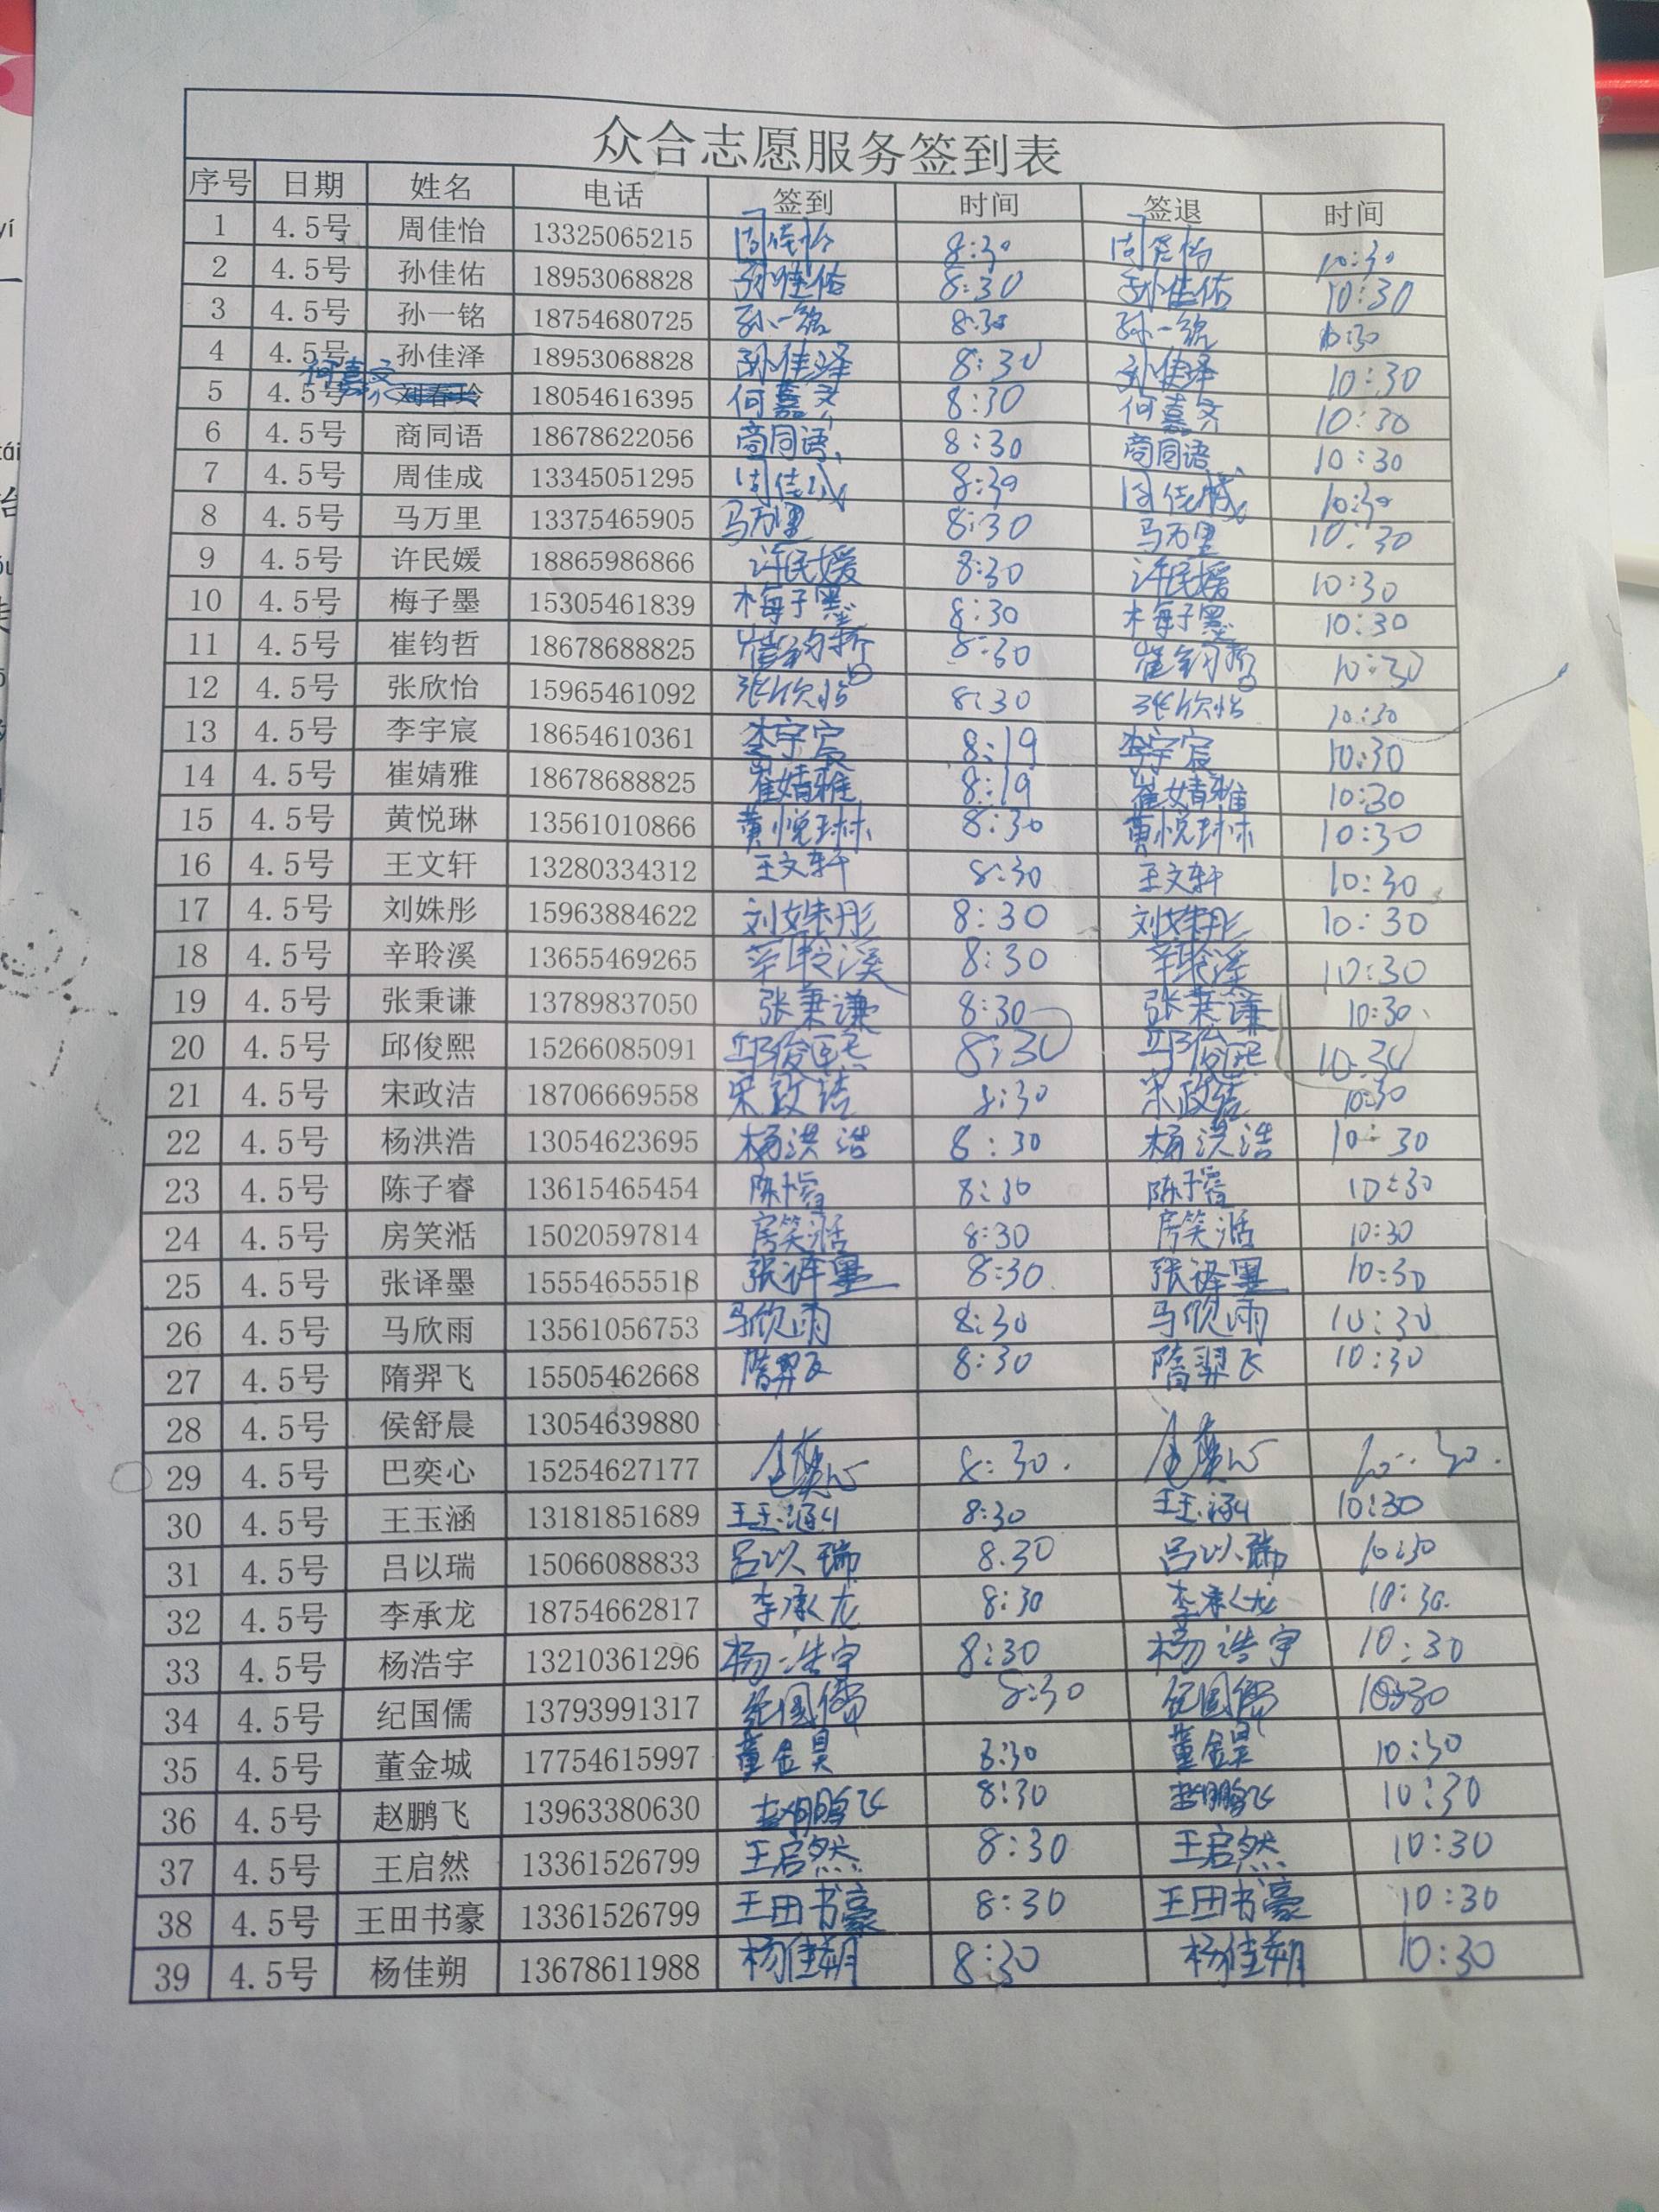 众合志愿服务签到表
序号 日期 姓名 电话 签到 时间 签退 时间
1 4.5号 周佳怡 13325065215 周佳怡 8:30 周佳怡 10:30
2 4.5号 孙佳佑 18953068828 孙佳佑 8:30 孙佳佑 10:30
3 4.5号 孙一铭 18754680725 孙一铭 8:30 孙一铭 10:30
4 4.5号 孙佳泽 18953068828 孙佳泽 8:30 孙佳泽 10:30
何嘉文
5 4.5号 刘春玲 18054616395 何嘉文 8:30 何嘉文 10:30
6 4.5号 商同语 18678622056 商同语 8:30 商同语 10:30
7 4.5号 周佳成 13345051295 周佳成 8:30 周佳成 10:30
8 4.5号 马万里 13375465905 马万里 8:30 马万里 10:30
9 4.5号 许民媛 18865986866 许民媛 8:30 许民媛 10:30
10 4.5号 梅子墨 15305461839 梅子墨 8:30 梅子墨 10:30
11 4.5号 崔钧哲 18678688825 崔钧哲 8:30 崔钧哲 10:30
12 4.5号 张欣怡 15965461092 张欣怡 8:30 张欣怡 10:30
13 4.5号 李宇宸 18654610361 李宇宸 8:19 李宇宸 10:30
14 4.5号 崔婧雅 18678688825 崔婧雅 8:19 崔婧雅 10:30
15 4.5号 黄悦琳 13561010866 黄悦琳 8:30 黄悦琳 10:30
16 4.5号 王文轩 13280334312 王文轩 8:30 王文轩 10:30
17 4.5号 刘姝彤 15963884622 刘姝彤 8:30 刘姝彤 10:30
18 4.5号 辛聆溪 13655469265 辛聆溪 8:30 辛聆溪 10:30
19 4.5号 张秉谦 13789837050 张秉谦 8:30 张秉谦 10:30
20 4.5号 邱俊熙 15266085091 邱俊熙 8:30 邱俊熙 10:30
21 4.5号 宋政洁 18706669558 宋政洁 8:30 宋政洁 10:30
22 4.5号 杨洪浩 13054623695 杨洪浩 8:30 杨洪浩 10:30
23 4.5号 陈子睿 13615465454 陈子睿 8:30 陈子睿 10:30
24 4.5号 房笑湉 15020597814 房笑湉 8:30 房笑湉 10:30
25 4.5号 张译墨 15554655518 张译墨 8:30 张译墨 10:30
26 4.5号 马欣雨 13561056753 马欣雨 8:30 马欣雨 10:30
27 4.5号 隋羿飞 15505462668 隋羿飞 8:30 隋羿飞 10:30
28 4.5号 侯舒晨 13054639880
29 4.5号 巴奕心 15254627177 8:30. 10:30.
30 4.5号 王玉涵 13181851689 王玉涵 8:30 王玉涵 10:30
31 4.5号 吕以瑞 15066088833 吕以瑞 8.30 吕以瑞 10:30
32 4.5号 李承龙 18754662817 李承龙 8:30 李承龙 10:30.
33 4.5号 杨浩宇 13210361296 杨浩宇 8:30 杨浩宇 10:30
34 4.5号 纪国儒 13793991317 纪国儒 8:30 纪国儒 10:30
35 4.5号 董金城 17754615997 董金昊 8:30 董金昊 10:30
36 4.5号 赵鹏飞 13963380630 赵鹏飞 8:30 赵鹏飞 10:30
37 4.5号 王启然 13361526799 王启然 8:30 王启然 10:30
38 4.5号 王田书豪 13361526799 王田书豪 8:30 王田书豪 10:30
39 4.5号 杨佳朔 13678611988 杨佳朔 8:30 杨佳朔 10:30